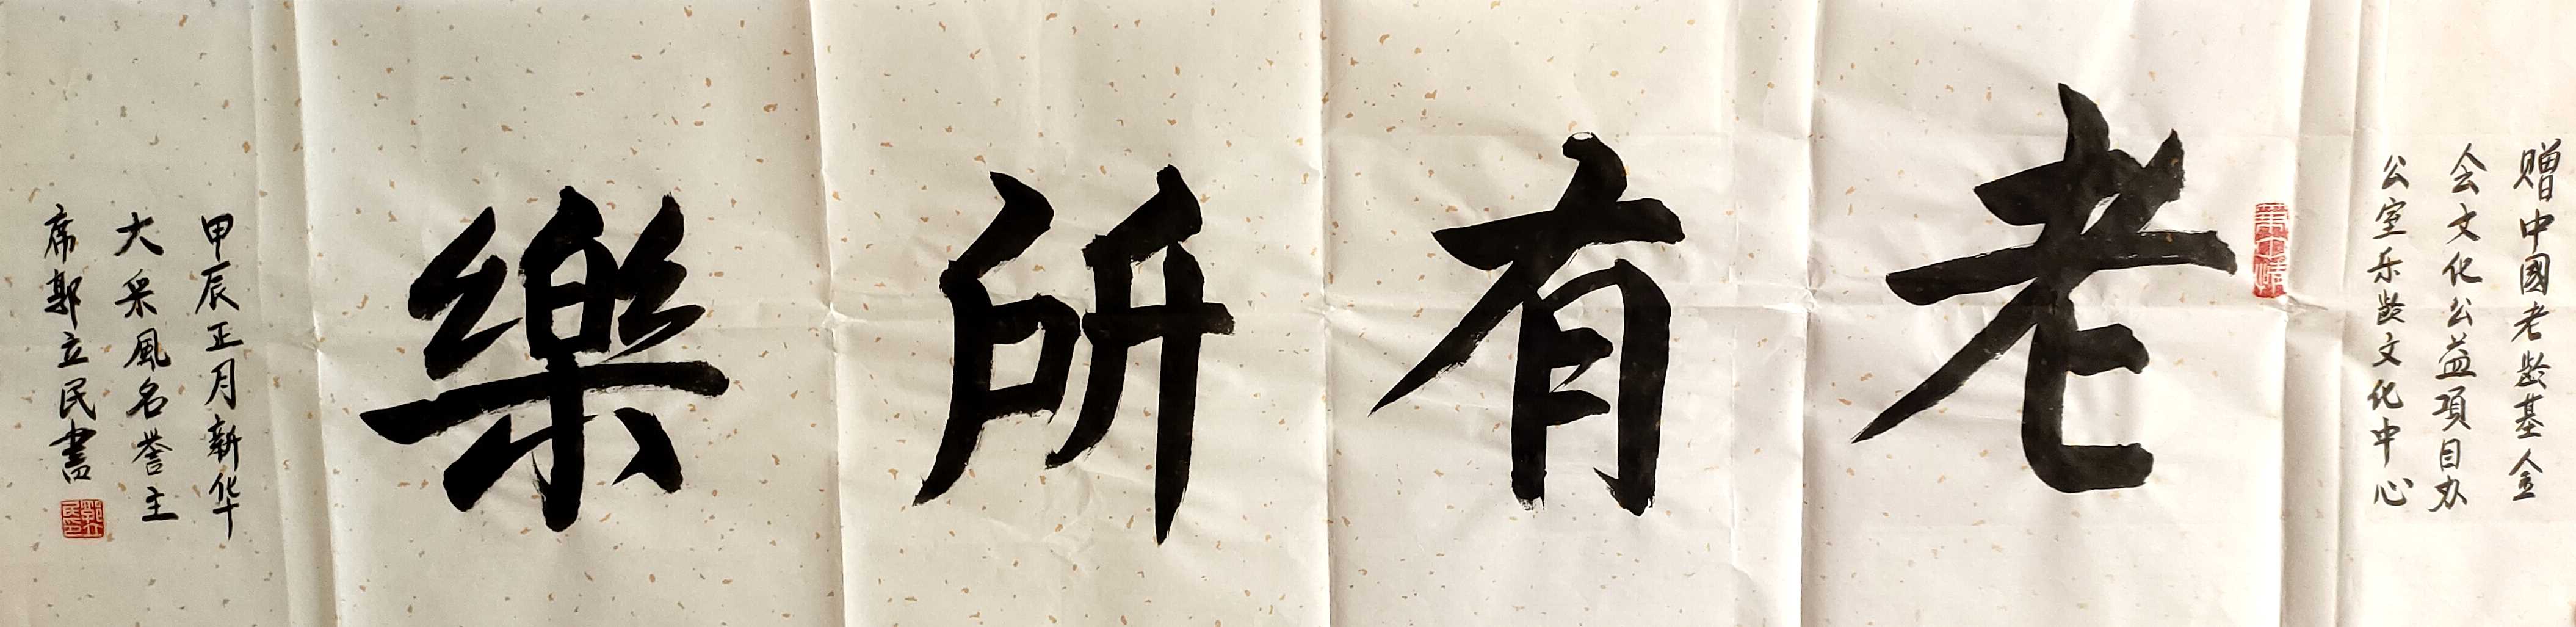 赠中國老龄基金
会文化公益項目办
公室乐龄文化中心
老有所樂
甲辰正月新华
大采風名誉主
席郭立民書